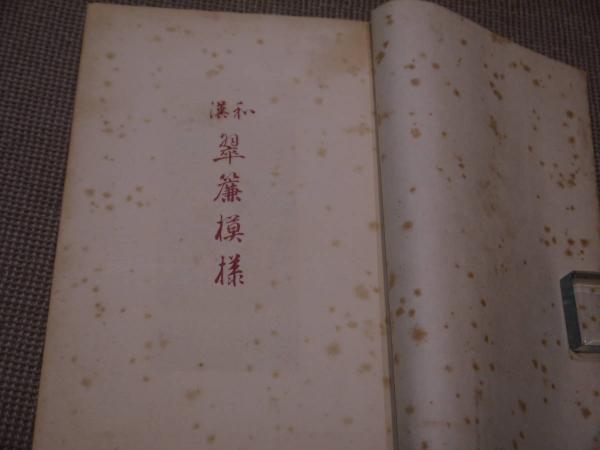 和漢
翠簾模様